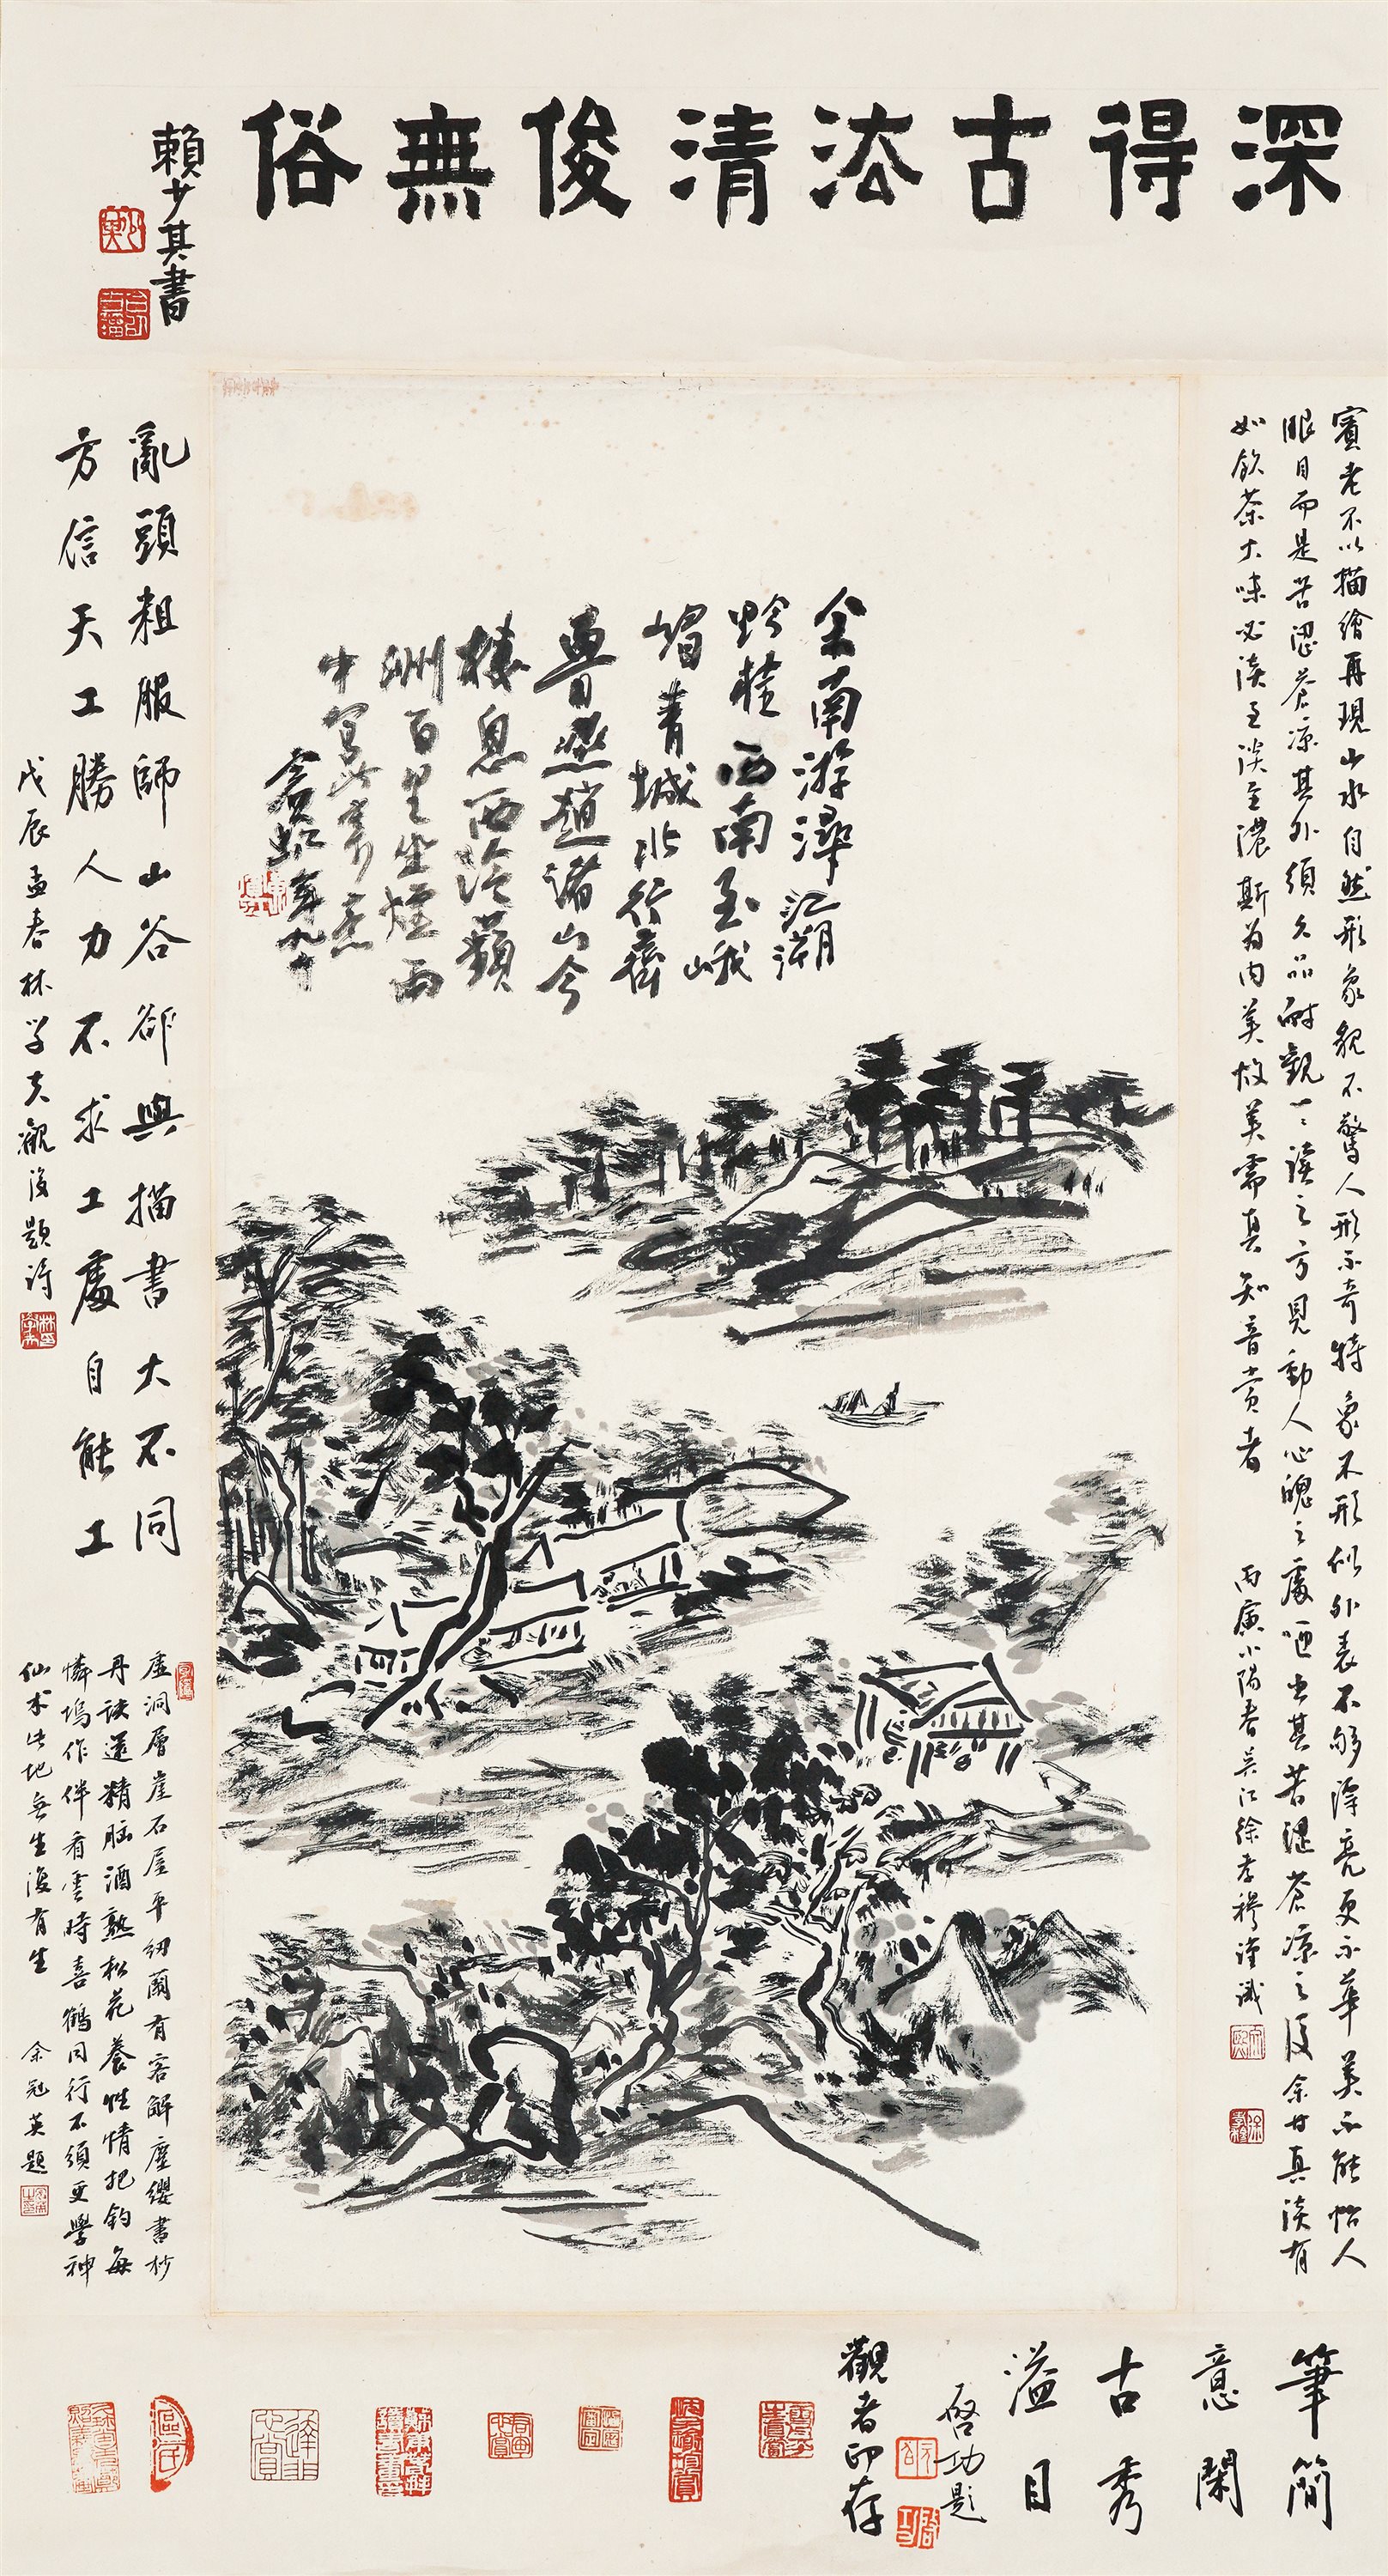 深得古法清俊無俗
賴少其書
余南游潯江湖
黔桂西南至峨
嵋青城北行齊
魯燕趙諸山今
棲息西泠蘋
洲百里坐煙雨
中寫此
賓虹年九十
賓老不以描繪再現山水自然形象貌不驚人形不奇特象不形似外表不够漂亮更不華美不能怡人
眼目而是苦澀蒼凉其外須久品耐觀一一讀之方見動人心魄之處哂出其苦澀蒼凉之後余甘真淡有
如飲茶大味必淡至淡至濃斯为内美故美需真知音賞者
丙寅小陽春吴江徐孝穆謹識
亂頭粗服師山谷卻與描畫大不同
方信天工勝人力不求工處自能工
戊辰孟春林 觀後題詩
虛洞層崖石屋平 有客解塵纓書抄
丹訣還精腦酒熟松花養性情把釣每
憐塢作伴看雲時喜鶴同行不須更學神
仙术此地無生復有生
余冠英題
筆簡
意閑
古秀
溢目
啓功題
觀者印存